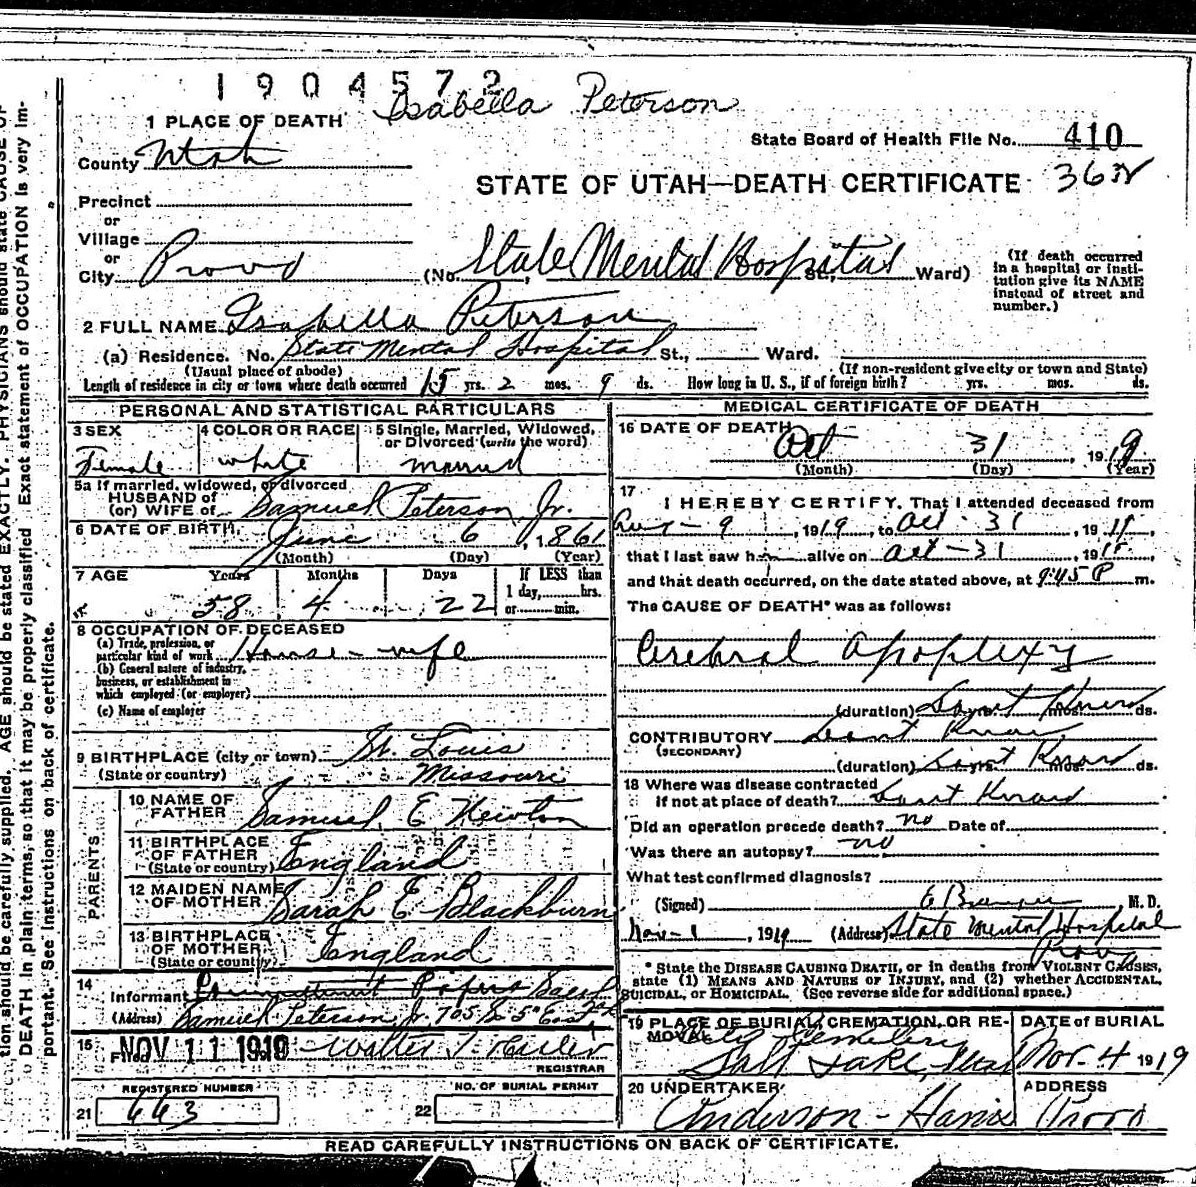 1904572
Isabella Peterson
1 PLACE OF DEATH
State Board of Health File No. 410
County Utah
STATE OF UTAH—DEATH CERTIFICATE
Precinct
or
Village
or
City Provo (No. State Mental Hospital St., Ward)
(If death occurred
in a hospital or insti-
tution give its NAME
instead of street and
number.)
2 FULL NAME Isabella Peterson
(a) Residence. No. State Mental Hospital St., Ward.
(Usual place of abode) (If non-resident give city or town and State)
Length of residence in city or town where death occurred 15 yrs. 2 mos. 9 ds. How long in U. S., if of foreign birth? yrs. mos. ds.
PERSONAL AND STATISTICAL PARTICULARS
3 SEX
Female
4 COLOR OR RACE
white
5 Single, Married, Widowed,
or Divorced (write the word)
married
5a If married, widowed, or divorced
HUSBAND of
(or) WIFE of Samuel Peterson Jr.
6 DATE OF BIRTH June 6, 1861
(Month) (Day) (Year)
7 AGE Years Months Days
58 4 22
If LESS than
1 day, hrs.
or min.
8 OCCUPATION OF DECEASED
(a) Trade, profession, or
particular kind of work House-wife
(b) General nature of industry,
business, or establishment in
which employed (or employer)
(c) Name of employer
9 BIRTHPLACE (city or town) St. Louis
(State or country) Missouri
PARENTS
10 NAME OF
FATHER Samuel E Newton
11 BIRTHPLACE
OF FATHER England
(State or country)
12 MAIDEN NAME
OF MOTHER Sarah E Blackburn
13 BIRTHPLACE
OF MOTHER England
(State or country)
14
Informant Commitment Papers
(Address) Samuel Peterson Jr. 705 So 5th East
15 Filed NOV 11 1919 Walter T.
REGISTRAR
REGISTERED NUMBER
21 443
NO. OF BURIAL PERMIT
22
MEDICAL CERTIFICATE OF DEATH
16 DATE OF DEATH
Oct 31, 1919
(Month) (Day) (Year)
17
I HEREBY CERTIFY, That I attended deceased from
Aug-9, 1919, to Oct-31, 1919,
that I last saw h alive on Oct-31, 1919,
and that death occurred, on the date stated above, at 9:45 P m.
The CAUSE OF DEATH* was as follows:
Cerebral Apoplexy
(duration) yrs. mos. ds.
CONTRIBUTORY
(SECONDARY)
(duration) yrs. mos. ds.
18 Where was disease contracted
if not at place of death?
Did an operation precede death? no Date of
Was there an autopsy? no
What test confirmed diagnosis?
(Signed) M. D.
Nov-1, 1919 (Address) State Mental Hospital
Provo
* State the DISEASE CAUSING DEATH, or in deaths from VIOLENT CAUSES,
state (1) MEANS AND NATURE OF INJURY, and (2) whether ACCIDENTAL,
SUICIDAL, or HOMICIDAL. (See reverse side for additional space.)
19 PLACE OF BURIAL, CREMATION, OR RE-
MOVAL City Cemetery
Salt Lake, Utah
DATE of BURIAL
Nov. 4 1919
20 UNDERTAKER
Anderson-
ADDRESS
Provo
READ CAREFULLY INSTRUCTIONS ON BACK OF CERTIFICATE.
tion should be carefully supplied. AGE should be stated EXACTLY. PHYSICIANS should state CAUSE OF
DEATH in plain terms, so that it may be properly classified. Exact statement of OCCUPATION is very im-
portant. See instructions on back of certificate.